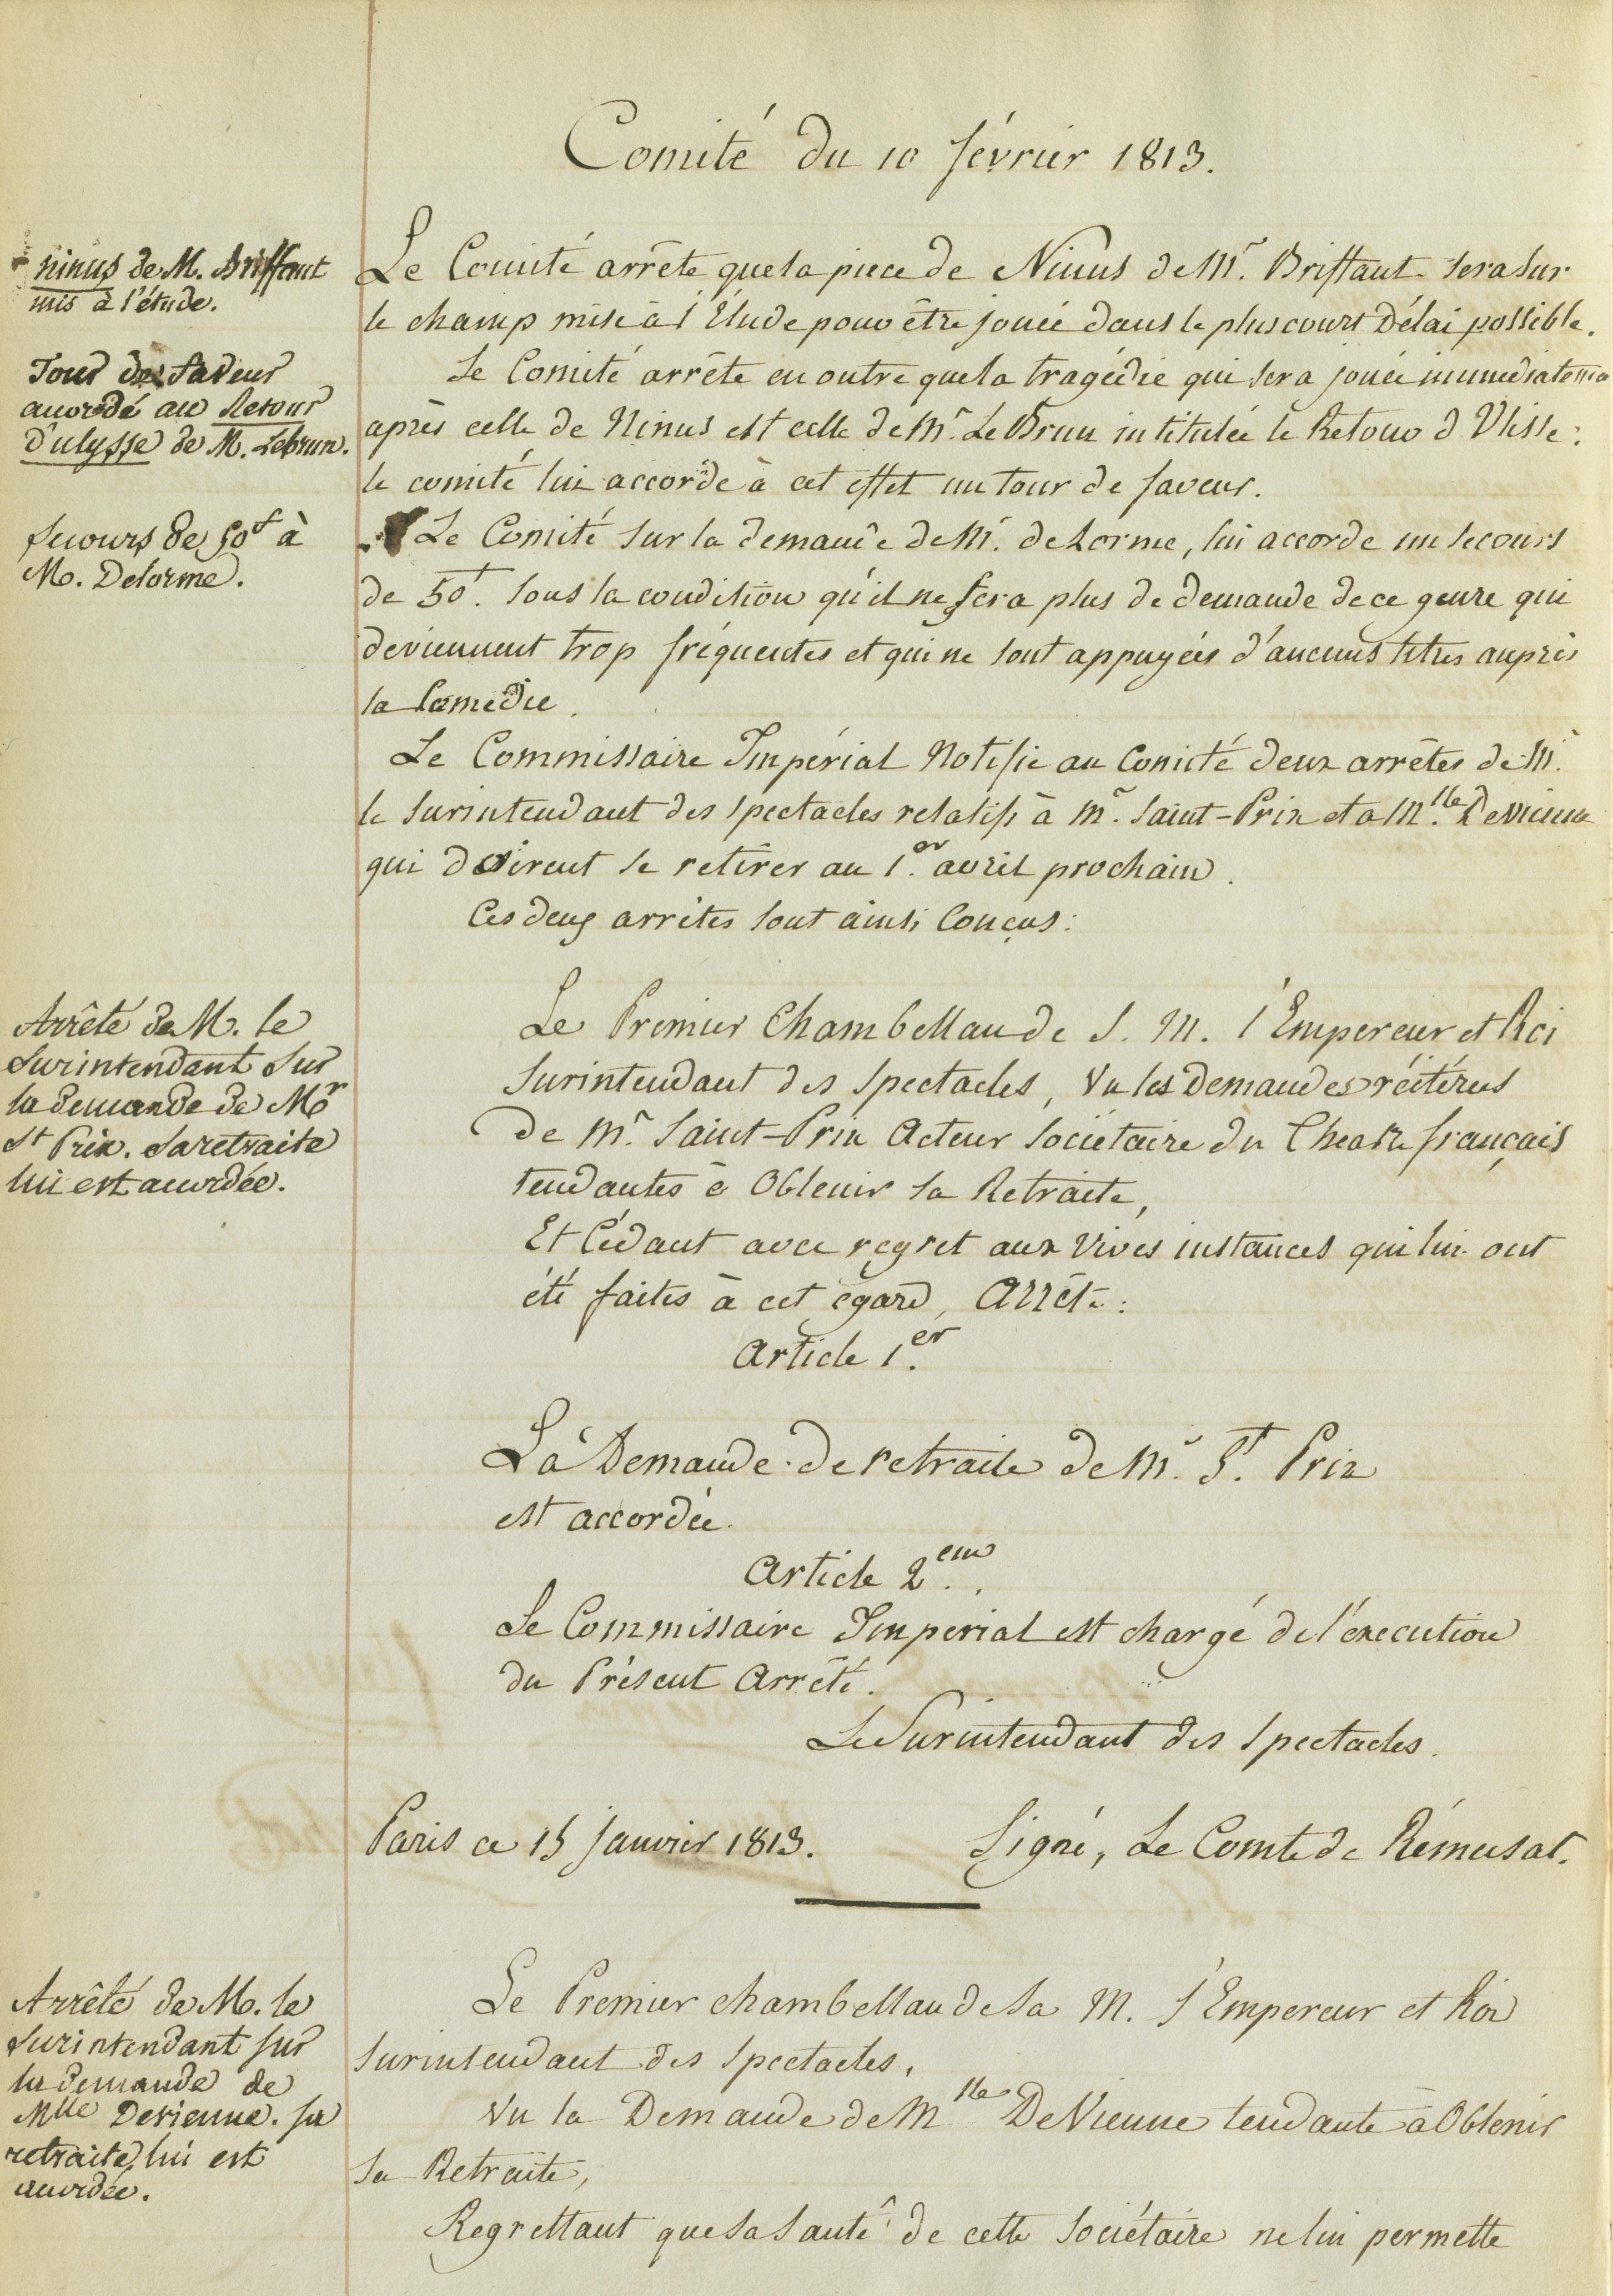 Comité du 10 février 1813.
Ninus de M. Briffaut
mis à l'étude.
Le Comité arrête que la piece de Ninus de Mr. Briffaut sera sur
le champ mise à l'Étude pour être jouée dans le plus court Délai possible.
Tour de faveur
accordé au Retour
d'ulysse de M. Lebrun.
Le Comité arrête en outre que la tragédie qui sera jouée immediatemt
après celle de Ninus est celle de Mr. Le Brun intitulée le Retour d'Ulisse:
le comité lui accorde à cet effet un tour de faveur.
Secours de 50f à
M. Delorme.
Le Comité sur la demande de Mr. de Lorme, lui accorde un secours
de 50f. sous la condition qu'il ne fera plus de demande de ce genre qui
deviennent trop fréquentes et qui ne sont appuyées d'aucuns titres auprès
la Comédie.
Le Commissaire Impérial Notifie au Comité deux arrêtés de Mr.
le Surintendant des Spectacles relatifs à Mr. Saint-Prix et a Mlle. Devienne
qui désirent se retirer au 1er. avril prochain.
Ces deux arrêtés sont ainsi Conçus:
Arrêté de M. le
Surintendant Sur
la demande de Mr
St Prix. Sa retraite
lui est accordée.
Le Premier Chambellan de S. M. l'Empereur et Roi
Surintendant des Spectacles, Vu les Demandes réitérées
de Mr. Saint-Prix Acteur Sociétaire du Theatre français
tendantes à Obtenir sa Retraite,
Et Cédant avec regret aux Vives instances qui lui ont
été faites à cet égard, Arrête:
Article 1er.
La Demande de retraite de Mr. St. Prix
est accordée.
Article 2em.
Le Commissaire Imperial est chargé de l'execution
du Présent Arrêté.
Le Surintendant des Spectacles.
Paris ce 15 Janvier 1813. Signé, Le Comte de Rémusat.
Arrêté de M. le
Surintendant sur
la demande de
Mlle Devienne. sa
retraite lui est
accordée.
Le Premier chambellan de Sa M. l'Empereur et Roi
Surintendant des Spectacles,
Vu la Demande de Mlle DeVienne tendante à Obtenir
sa Retraite,
Regrettant que la Santé de cette Sociétaire ne lui permette